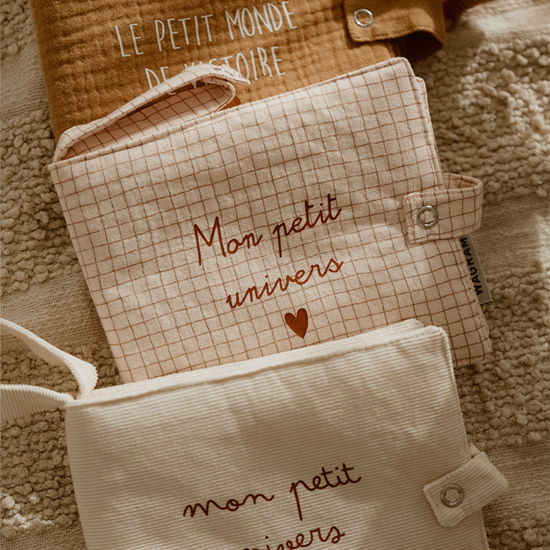 LE PETIT MONDE
DE VICTOIRE
Mon petit
univers
WAGRAM
mon petit
univers